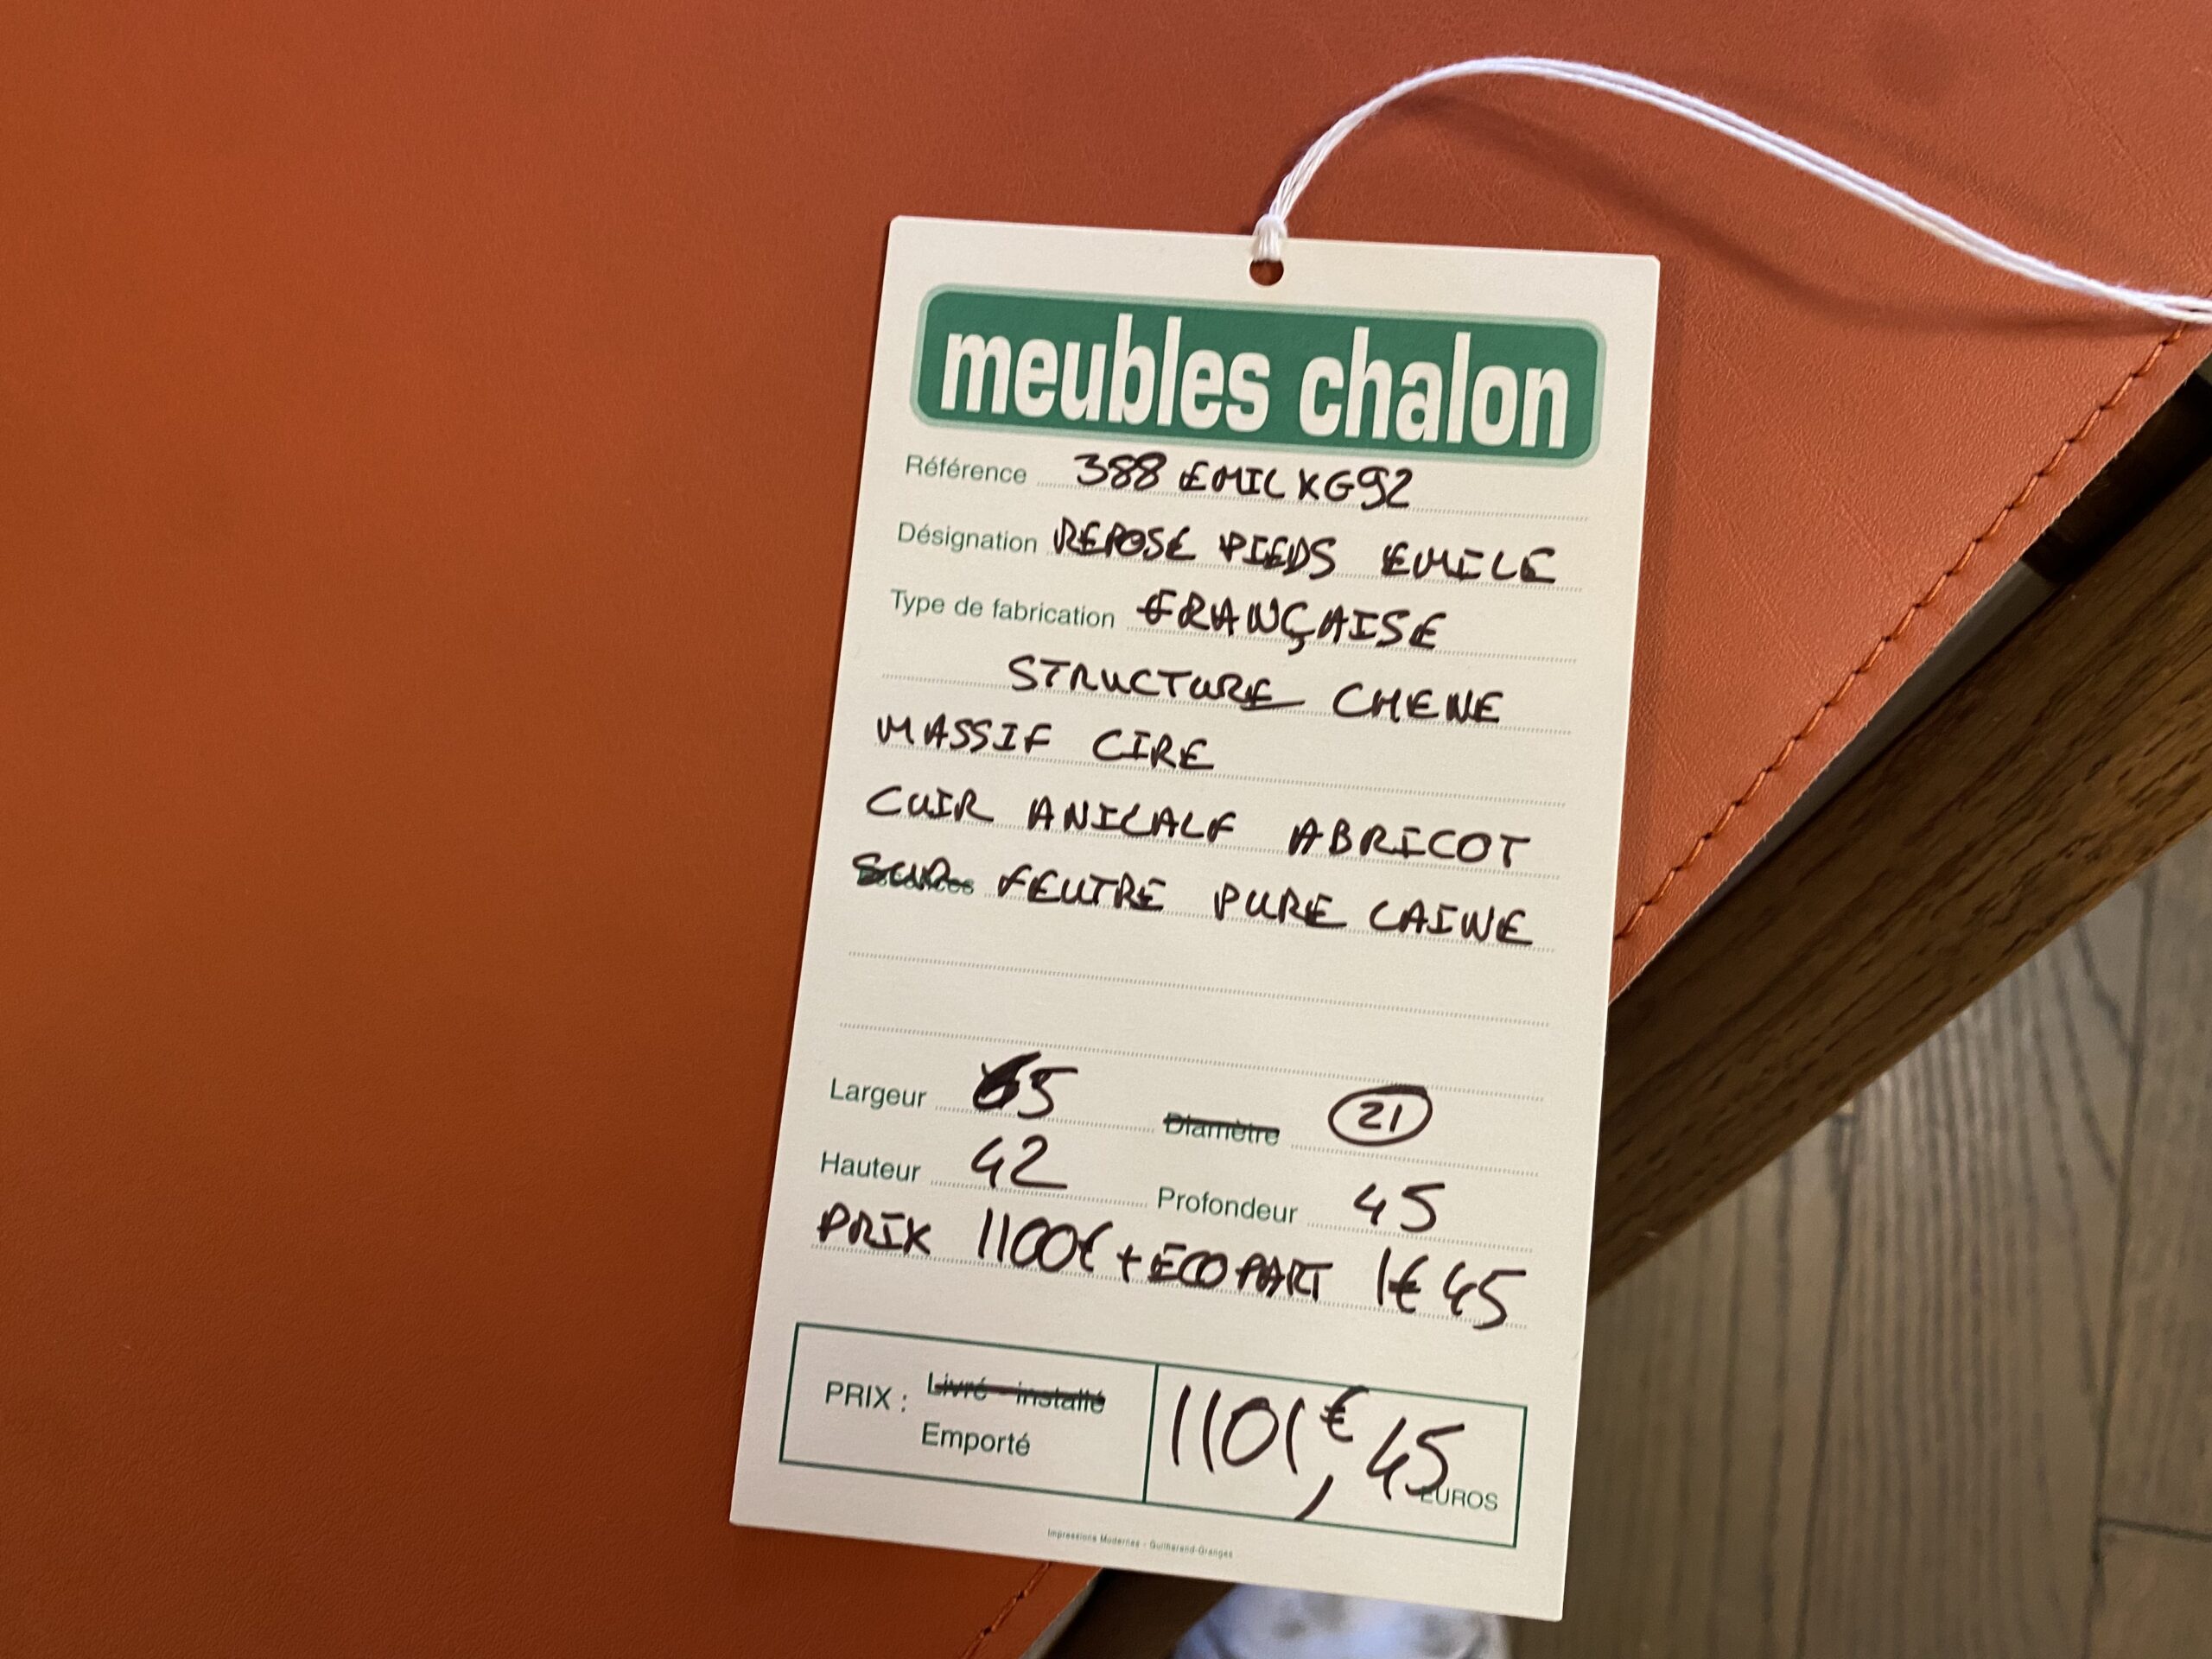 meubles chalon
Référence 388 EMILKG92
Désignation REPOSE PIEDS EMILE
Type de fabrication FRANÇAISE
STRUCTURE CHENE
MASSIF CIRE
CUIR ANILALF ABRICOT
SUR FEUTRE PURE LAINE
Largeur 65 Diamètre 21
Hauteur 42 Profondeur 45
PRIX 1100€ + ECOPART 1€45
PRIX : Livré - installé
Emporté
1101,€45 EUROS
Impressions Modernes - Guilherand-Granges